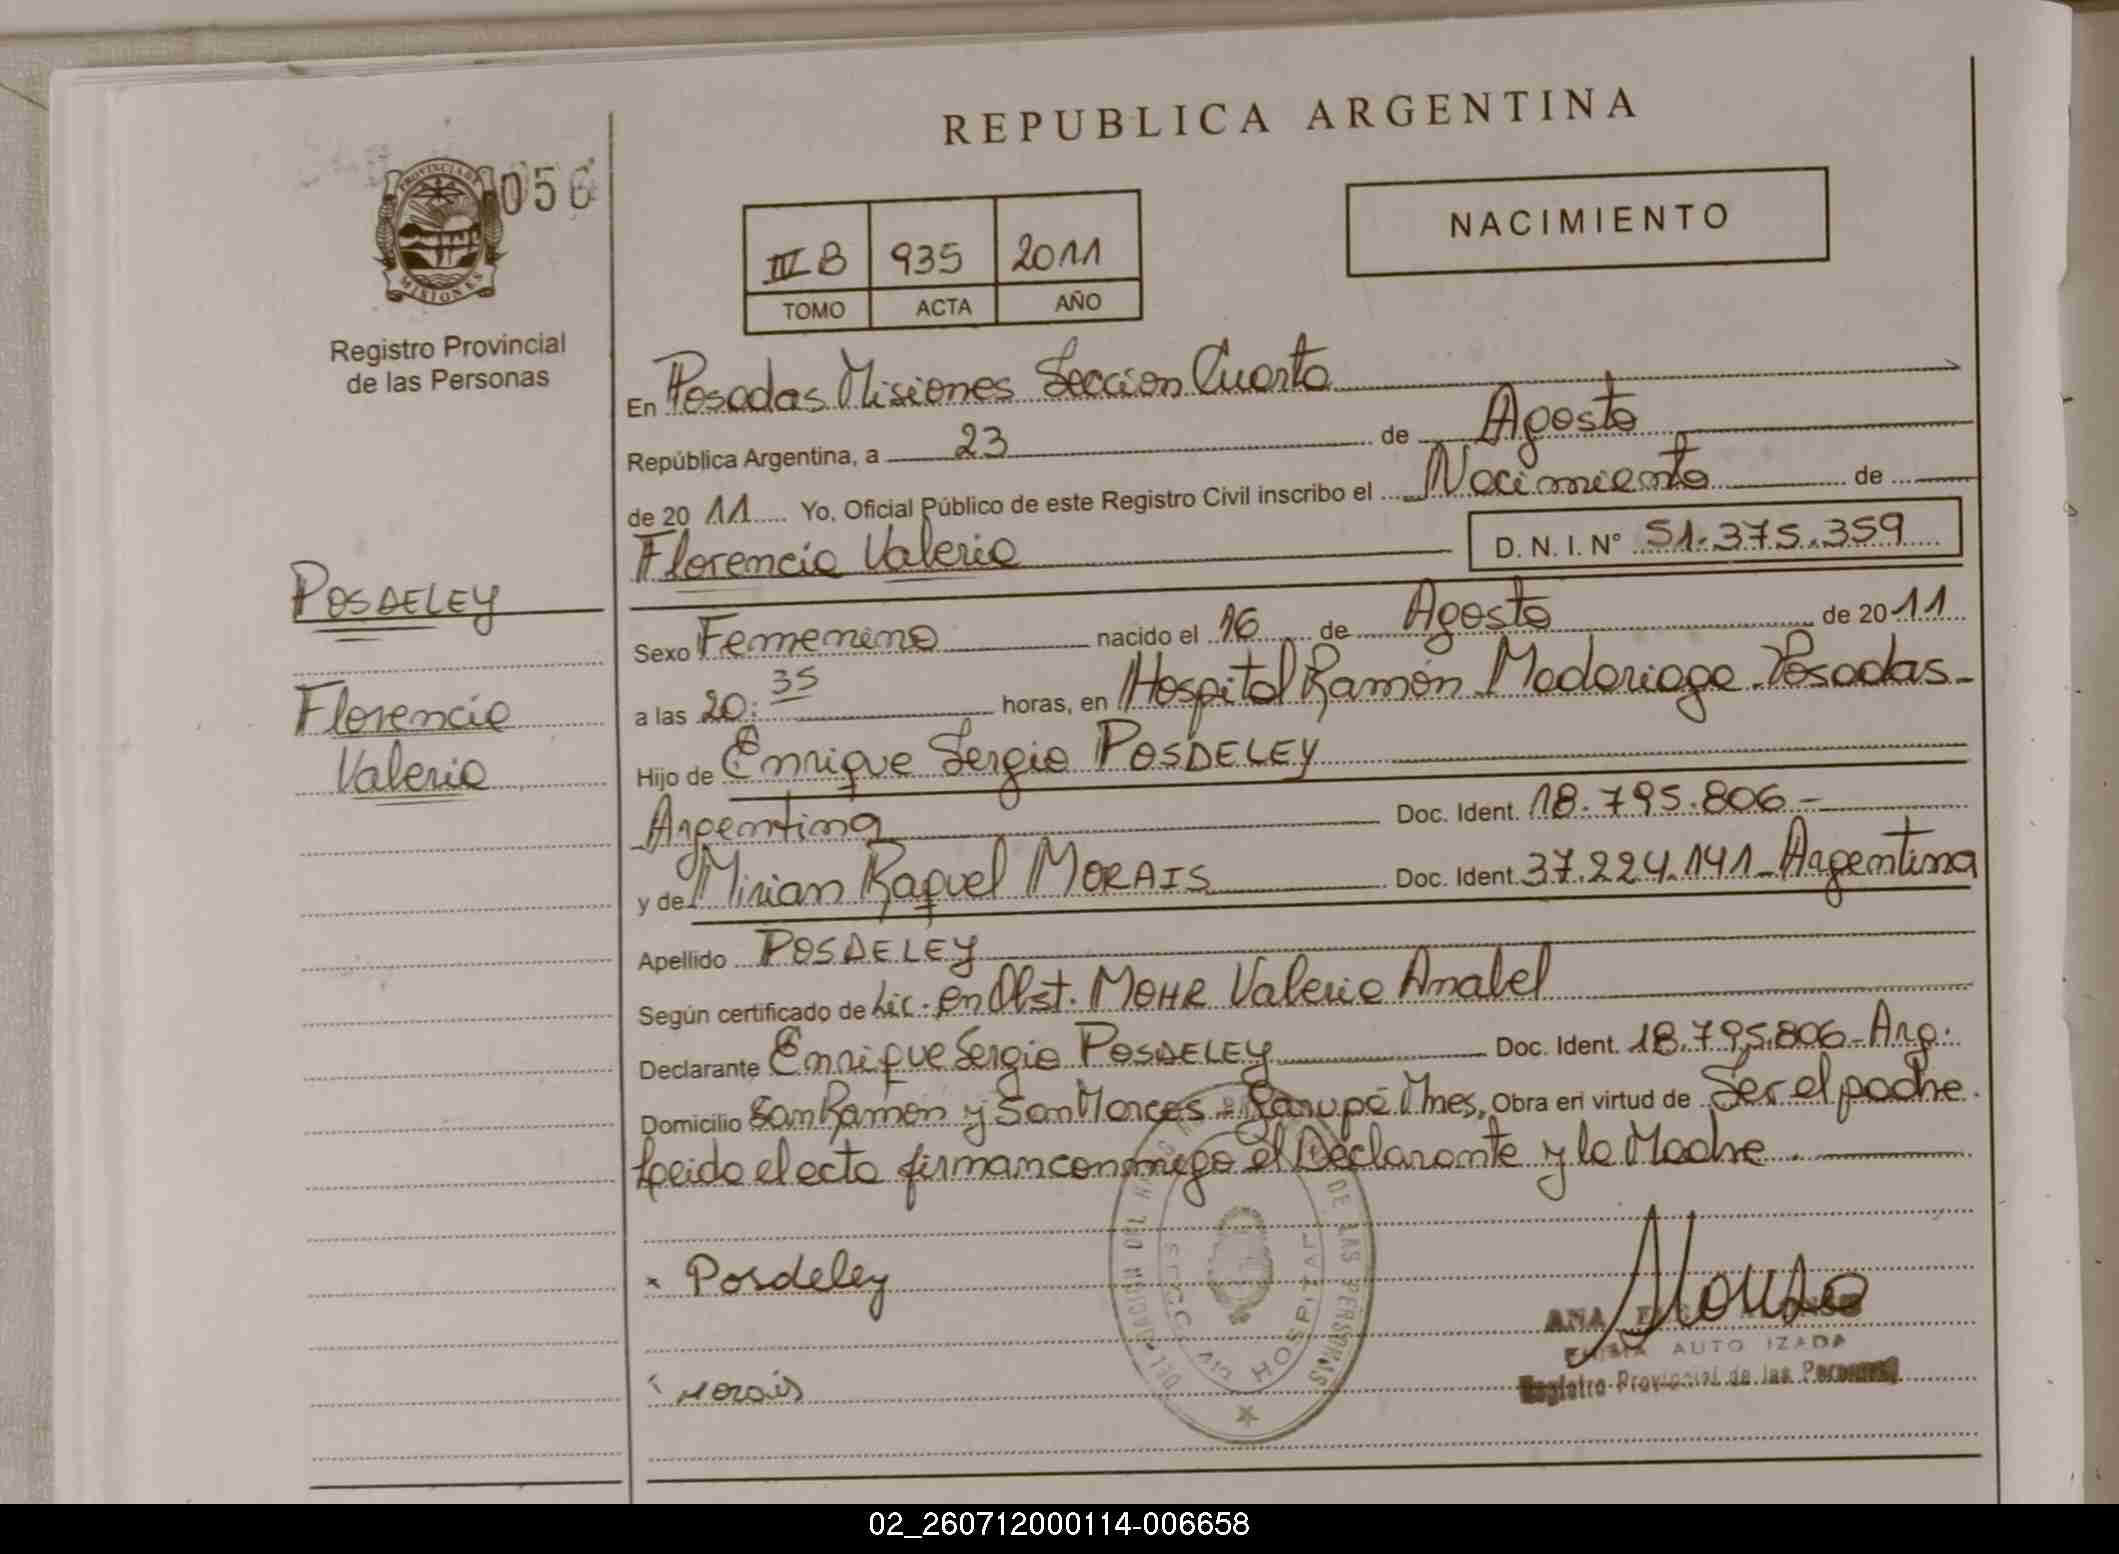 REPUBLICA ARGENTINA
PROVINCIA DE
MISIONES
056
Registro Provincial
de las Personas
III B 935 2011
TOMO ACTA AÑO
NACIMIENTO
En Posadas Misiones Seccion Cuarta
República Argentina, a 23 de Agosto
de 20 11 Yo, Oficial Público de este Registro Civil inscribo el Nacimiento de
Florencia Valeria D. N. I. N° 51.375.359
POSDELEY
Florencia
Valeria
Sexo Femenino nacido el 16 de Agosto de 20 11
a las 20:35 horas, en Hospital Ramón Madariaga Posadas-
Hijo de Enrique Sergio POSDELEY
Argentina Doc. Ident. 18.795.806-
y de Mirian Raquel MORAIS Doc. Ident. 37.224.141- Argentina
Apellido POSDELEY
Según certificado de Lic. en Obst. MOHR Valeria Anabel
Declarante Enrique Sergio POSDELEY Doc. Ident. 18.795.806- Arg.
Domicilio San Ramon y San Marcos - Garupá Mnes, Obra en virtud de Ser el padre.
Leido el acta firman conmigo el Declarante y la Madre.
x Posdeley
Morais
Alonso
ANA
AUTO IZADA
Registro Provincial de las Personas
DE LAS PERSONAS
HOSPITAL
02_260712000114-006658